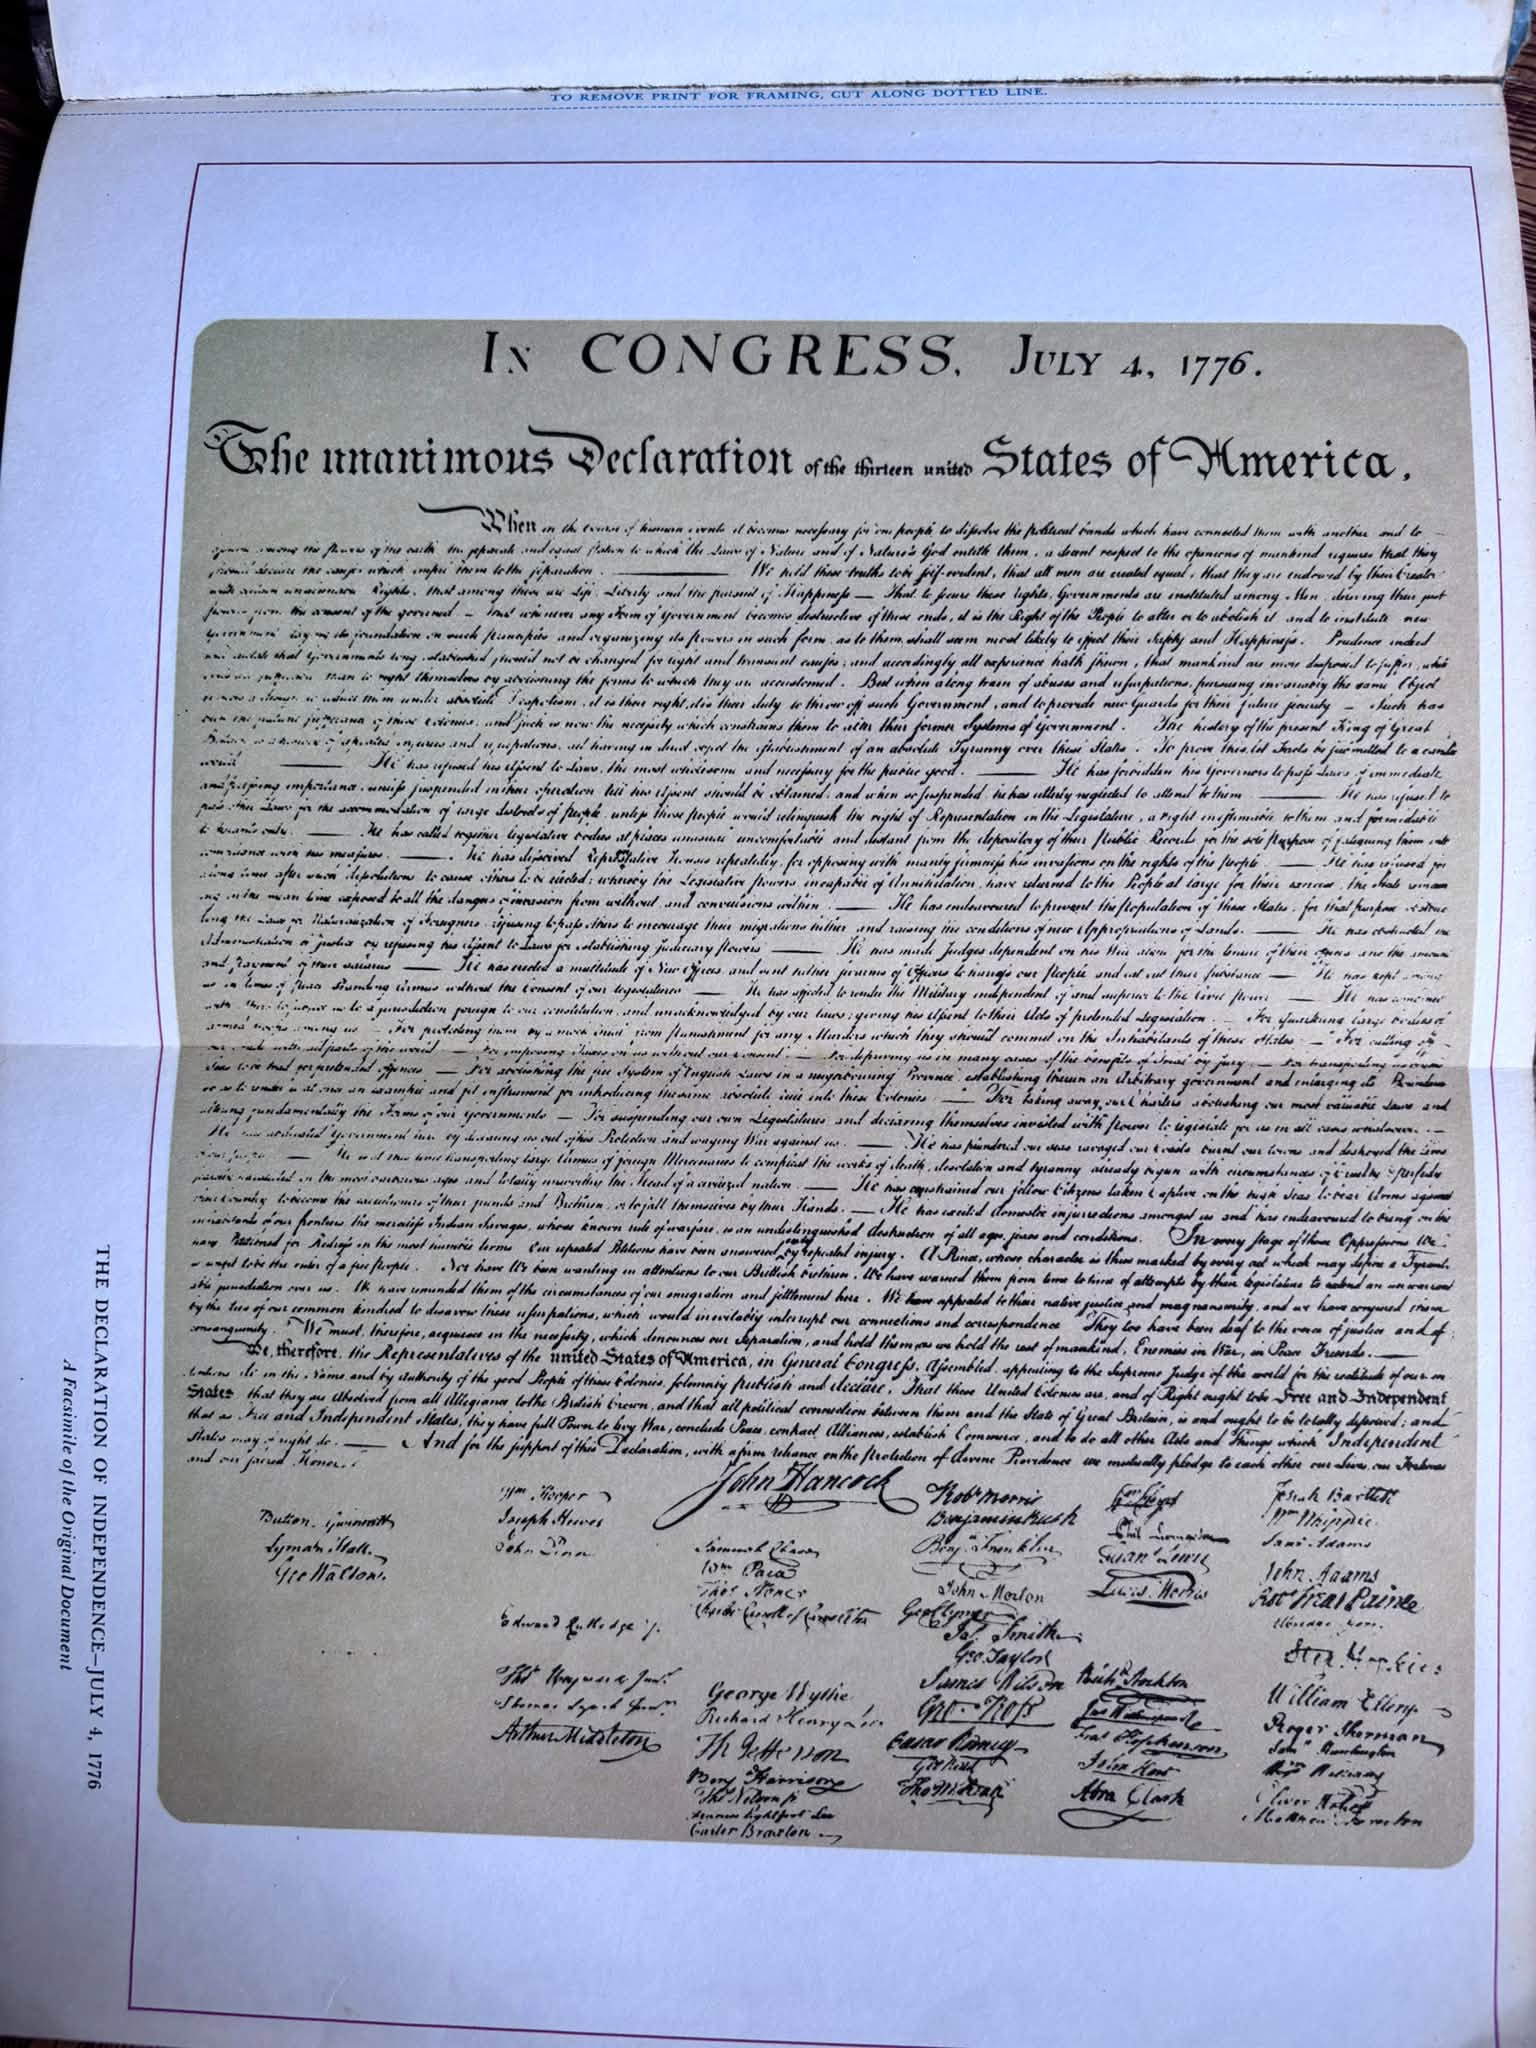 TO REMOVE PRINT FOR FRAMING, CUT ALONG DOTTED LINE.
IN CONGRESS, JULY 4, 1776.
The unanimous Declaration of the thirteen united States of America,
When in the Course of human events it becomes necessary for one people to dissolve the political bands which have connected them with another and to
among the powers of the earth, the separate and equal station to which the Laws of Nature and of Nature's God entitle them, a decent respect to the opinions of mankind requires that they
should declare the causes which impel them to the separation. — We hold these truths to be self-evident, that all men are created equal, that they are endowed by their Creator
with certain unalienable Rights, that among these are Life, Liberty and the pursuit of Happiness — That to secure these rights, Governments are instituted among Men, deriving their just
powers from the consent of the governed — That whenever any Form of Government becomes destructive of these ends, it is the Right of the People to alter or to abolish it, and to institute new
Government, laying its foundation on such principles and organizing its powers in such form, as to them shall seem most likely to effect their Safety and Happiness. Prudence indeed
will dictate that Governments long established should not be changed for light and transient causes; and accordingly all experience hath shewn, that mankind are more disposed to suffer, while
evils are sufferable, than to right themselves by abolishing the forms to which they are accustomed. But when a long train of abuses and usurpations, pursuing invariably the same Object
evinces a design to reduce them under absolute Despotism, it is their right, it is their duty, to throw off such Government, and to provide new Guards for their future security — Such has
been the patient sufferance of these Colonies; and such is now the necessity which constrains them to alter their former Systems of Government. The history of the present King of Great
Britain is a history of repeated injuries and usurpations, all having in direct object the establishment of an absolute Tyranny over these States. To prove this, let Facts be submitted to a candid
world. — He has refused his Assent to Laws, the most wholesome and necessary for the public good. — He has forbidden his Governors to pass Laws of immediate
and pressing importance, unless suspended in their operation till his Assent should be obtained; and when so suspended, he has utterly neglected to attend to them — He has refused to
pass other Laws for the accommodation of large districts of people, unless those people would relinquish the right of Representation in the Legislature, a right inestimable to them and formidable
to tyrants only. — He has called together legislative bodies at places unusual, uncomfortable, and distant from the depository of their Public Records, for the sole purpose of fatiguing them into
compliance with his measures. — He has dissolved Representative Houses repeatedly, for opposing with manly firmness his invasions on the rights of the people. — He has refused for
a long time, after such dissolutions, to cause others to be elected; whereby the Legislative powers, incapable of Annihilation, have returned to the People at large for their exercise; the State remain
ing in the mean time exposed to all the dangers of invasion from without, and convulsions within. — He has endeavoured to prevent the population of these States; for that purpose obstruc
ting the Laws for Naturalization of Foreigners; refusing to pass others to encourage their migrations hither, and raising the conditions of new Appropriations of Lands. — He has obstructed the
Administration of Justice, by refusing his Assent to Laws for establishing Judiciary powers — He has made Judges dependent on his Will alone, for the tenure of their offices, and the amount
and payment of their salaries — He has erected a multitude of New Offices, and sent hither swarms of Officers to harrass our people, and eat out their substance — He has kept among
us, in times of peace, Standing Armies without the Consent of our legislatures — He has affected to render the Military independent of and superior to the Civil power — He has combined
with others to subject us to a jurisdiction foreign to our constitution, and unacknowledged by our laws; giving his Assent to their Acts of pretended Legislation. — For quartering large bodies of
armed troops among us — For protecting them, by a mock Trial, from punishment for any Murders which they should commit on the Inhabitants of these States — For cutting off
our Trade with all parts of the world — For imposing Taxes on us without our Consent. — For depriving us in many cases, of the benefits of Trial by jury — For transporting us beyond
Seas to be tried for pretended offences — For abolishing the free System of English Laws in a neighbouring Province, establishing therein an Arbitrary government, and enlarging its Boundaries
so as to render it at once an example and fit instrument for introducing the same absolute rule into these Colonies — For taking away our Charters, abolishing our most valuable Laws and
altering fundamentally the Forms of our Governments — For suspending our own Legislatures and declaring themselves invested with power to legislate for us in all cases whatsoever. —
He has abdicated Government here, by declaring us out of his Protection and waging War against us. — He has plundered our seas, ravaged our Coasts, burnt our towns, and destroyed the lives
of our people. — He is at this time transporting large Armies of foreign Mercenaries to compleat the works of death, desolation and tyranny, already begun with circumstances of Cruelty & perfidy
scarcely paralleled in the most barbarous ages, and totally unworthy the Head of a civilized nation. — He has constrained our fellow Citizens taken Captive on the high Seas to bear Arms against
their Country, to become the executioners of their friends and Brethren, or to fall themselves by their Hands. — He has excited domestic insurrections amongst us, and has endeavoured to bring on the
inhabitants of our frontiers, the merciless Indian Savages, whose known rule of warfare, is an undistinguished destruction of all ages, sexes and conditions. In every stage of these Oppressions We
have Petitioned for Redress in the most humble terms: Our repeated Petitions have been answered only by repeated injury. A Prince, whose character is thus marked by every act which may define a Tyrant,
is unfit to be the ruler of a free people. Nor have We been wanting in attentions to our Brittish brethren. We have warned them from time to time of attempts by their legislature to extend an unwarrant
able jurisdiction over us. We have reminded them of the circumstances of our emigration and settlement here. We have appealed to their native justice and magnanimity, and we have conjured them
by the ties of our common kindred to disavow these usurpations, which would inevitably interrupt our connections and correspondence. They too have been deaf to the voice of justice and of
consanguinity. We must, therefore, acquiesce in the necessity, which denounces our Separation, and hold them, as we hold the rest of mankind, Enemies in War, in Peace Friends. —
We, therefore, the Representatives of the united States of America, in General Congress, Assembled, appealing to the Supreme Judge of the world for the rectitude of our in
tentions, do, in the Name, and by Authority of the good People of these Colonies, solemnly publish and declare, That these United Colonies are, and of Right ought to be Free and Independent
States; that they are Absolved from all Allegiance to the British Crown, and that all political connection between them and the State of Great Britain, is and ought to be totally dissolved; and
that as Free and Independent States, they have full Power to levy War, conclude Peace, contract Alliances, establish Commerce, and to do all other Acts and Things which Independent
States may of right do. — And for the support of this Declaration, with a firm reliance on the Protection of divine Providence, we mutually pledge to each other our Lives, our Fortunes
and our sacred Honor.
John Hancock
Button Gwinnett
Lyman Hall
Geo Walton.
Wm Hooper
Joseph Hewes
John Penn
Edward Rutledge
Thos Heyward Junr.
Thomas Lynch Junr.
Arthur Middleton
Samuel Chase
Wm Paca
Thos Stone
Charles Carroll of Carrollton
George Wythe
Richard Henry Lee
Th Jefferson
Benj Harrison
Thos Nelson jr
Francis Lightfoot Lee
Carter Braxton
Robt Morris
Benjamin Rush
Benj. Franklin
John Morton
Geo Clymer
Jas Smith
Geo Taylor
James Wilson
Geo. Ross
Caesar Rodney
Geo Read
Tho M:Kean
Wm Floyd
Phil. Livingston
Frans Lewis
Lewis Morris
Richd Stockton
Jno Witherspoon
Fras Hopkinson
John Hart
Abra Clark
Josiah Bartlett
Wm Whipple
Saml Adams
John Adams
Robt Treat Paine
Step Hopkins
William Ellery
Roger Sherman
Saml Huntington
Wm Williams
Oliver Wolcott
Matthew Thornton
THE DECLARATION OF INDEPENDENCE—JULY 4, 1776
A Facsimile of the Original Document